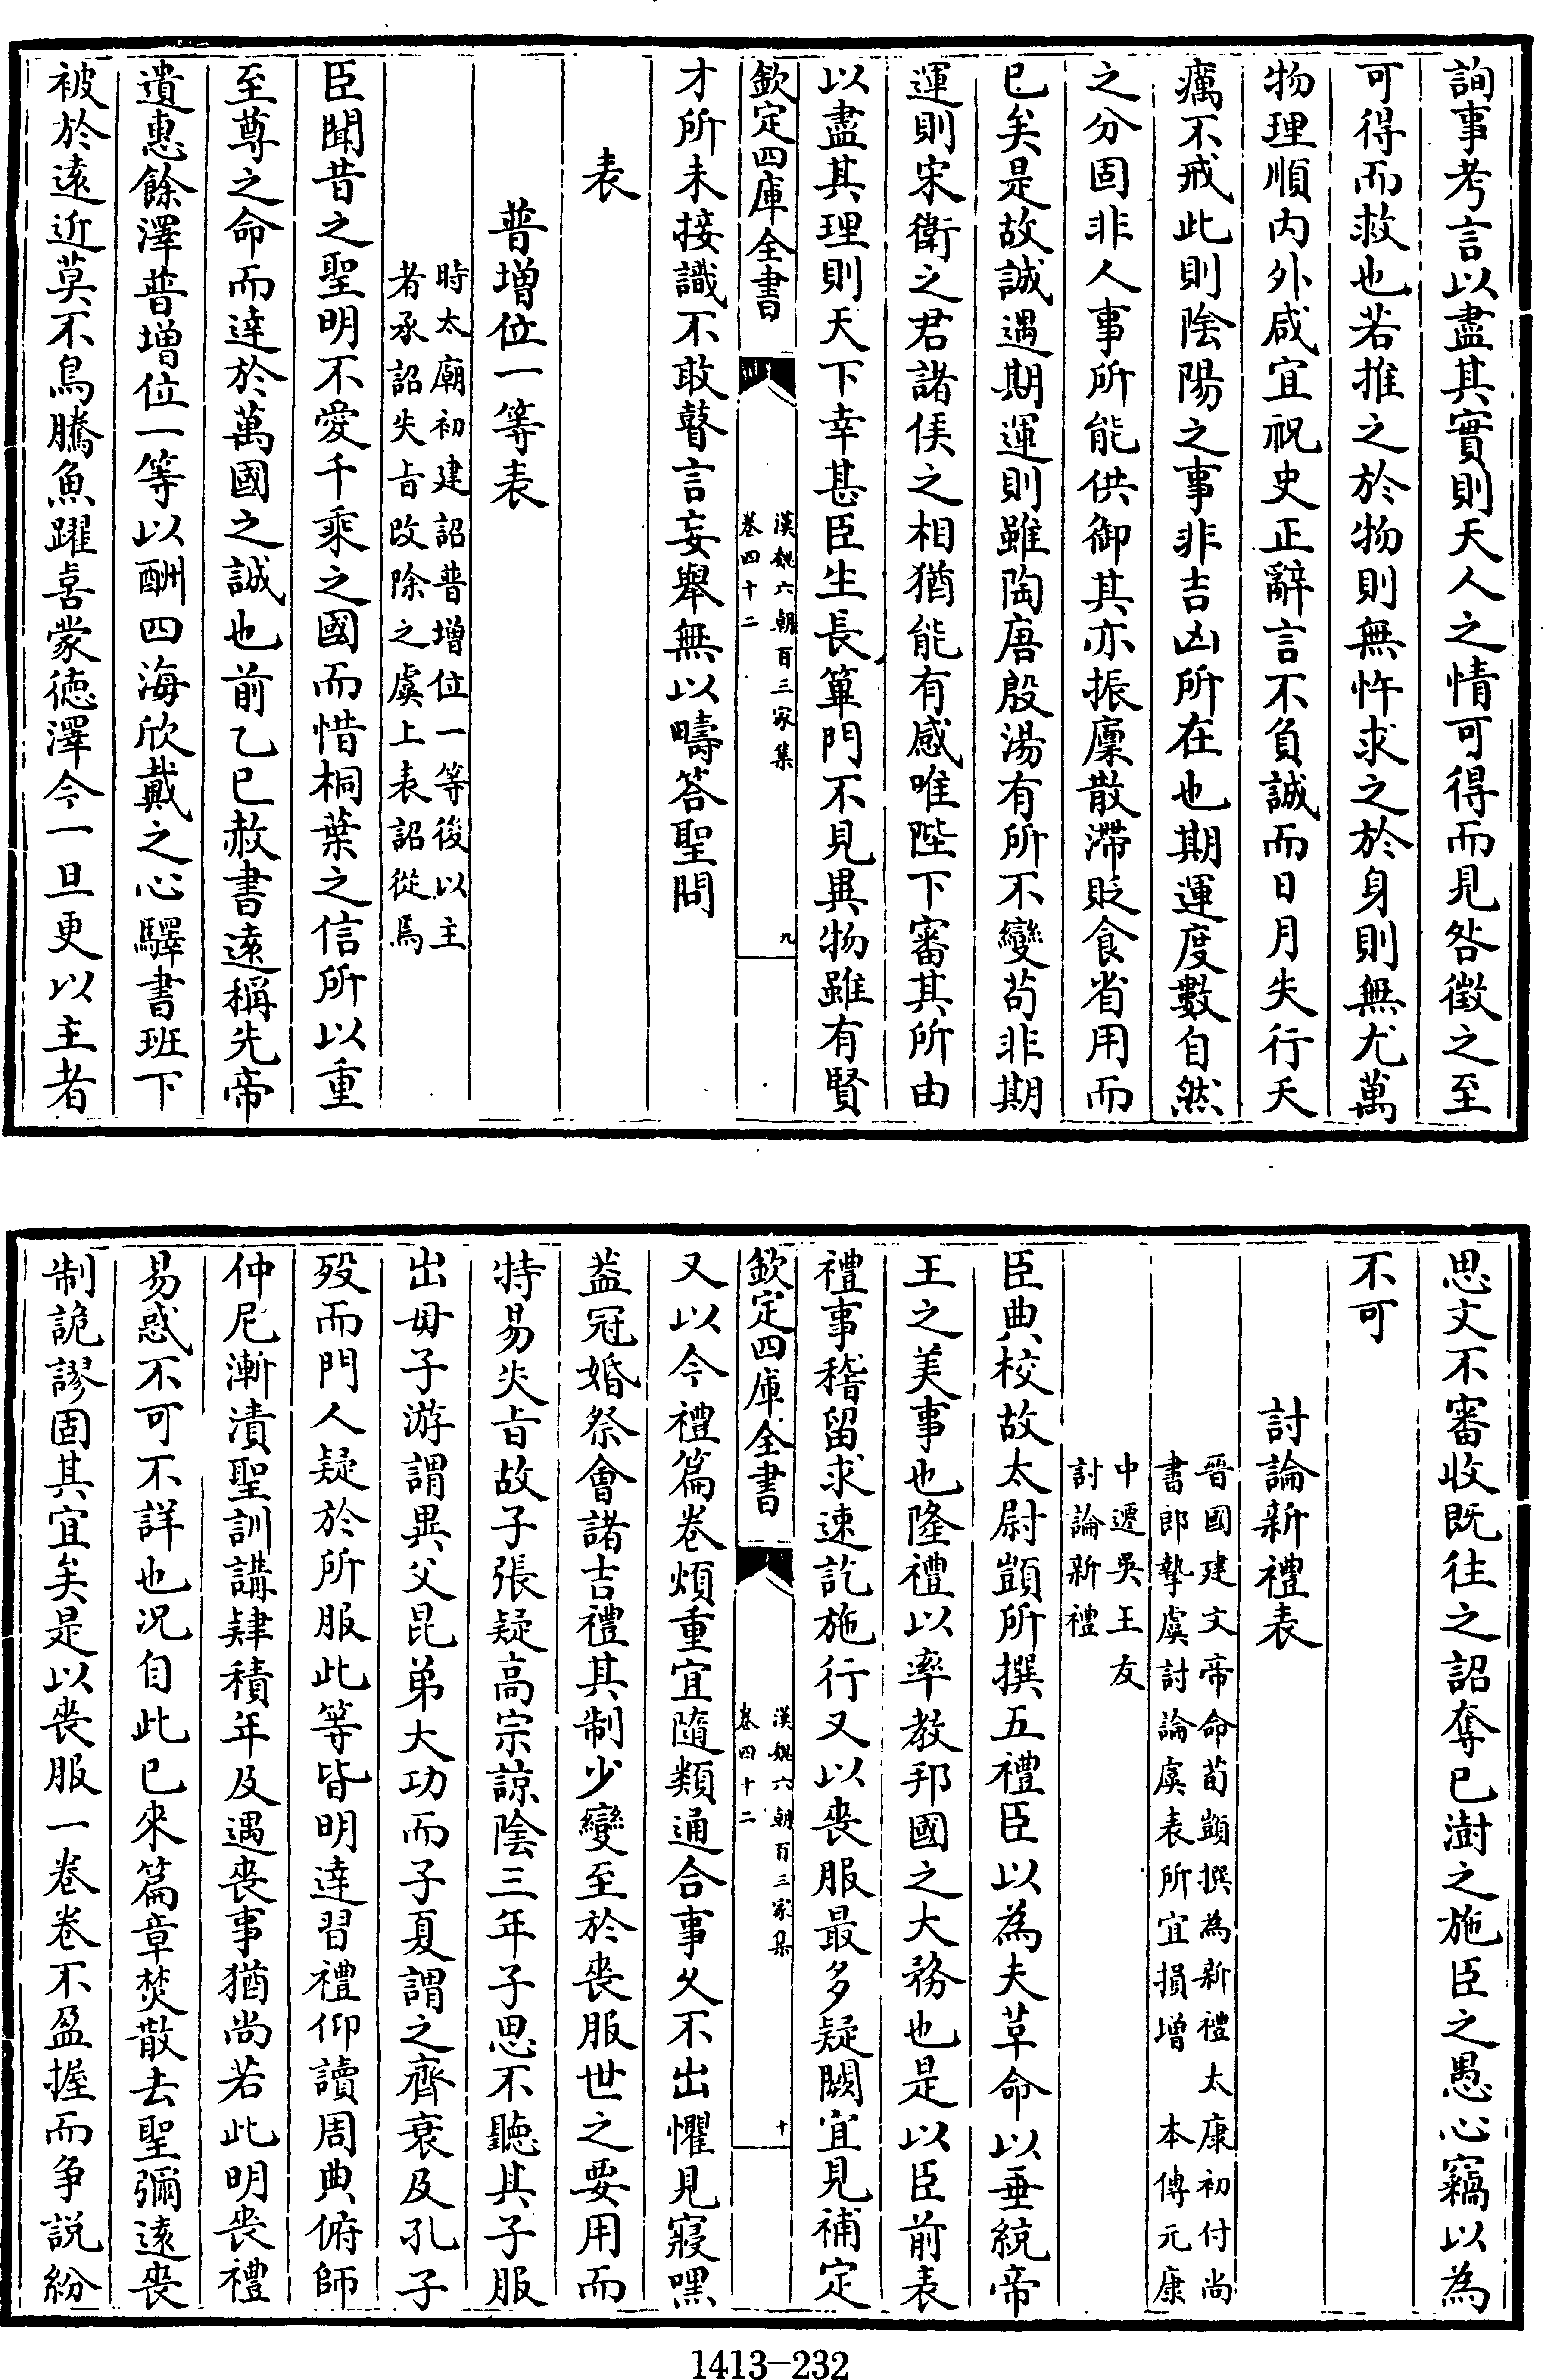 詢事考言以盡其實則天人之情可得而見咎徵之至
可得而救也若推之於物則無忤求之於身則無尤萬
物理順内外咸宜祝史正辭言不負誠而日月失行夭
癘不戒此則陰陽之事非吉凶所在也期運度數自然
之分固非人事所能供御其亦振廩散滯貶食省用而
已矣是故誠遇期運則雖陶唐殷湯有所不變苟非期
運則宋衛之君諸侯之相猶能有感唯陛下審其所由
以盡其理則天下幸甚臣生長蓽門不見異物雖有賢
欽定四庫全書
漢魏六朝百三家集
卷四十二
九
才所未接識不敢瞽言妄舉無以疇答聖問
表
普增位一等表
時太廟初建詔普增位一等後以主
者承詔失旨改除之虞上表詔從焉
臣聞昔之聖明不愛千乘之國而惜桐葉之信所以重
至尊之命而達於萬國之誠也前乙巳赦書遠稱先帝
遺惠餘澤普增位一等以酬四海欣戴之心驛書班下
被於遠近莫不鳥騰魚躍喜蒙德澤今一旦更以主者
思文不審收既往之詔奪已澍之施臣之愚心竊以為
不可
討論新禮表
晉國建文帝命荀顗撰為新禮太康初付尚
書郎摯虞討論虞表所宜損增　本傳元康
中遷吳王友
討論新禮
臣典校故太尉顗所撰五禮臣以為夫草命以垂統帝
王之美事也隆禮以率教邦國之大務也是以臣前表
禮事稽留求速訖施行又以喪服最多疑闕宜見補定
欽定四庫全書
漢魏六朝百三家集
卷四十二
十
又以今禮篇卷煩重宜隨類通合事久不出懼見寢嘿
葢冠婚祭會諸吉禮其制少變至於喪服世之要用而
特易失旨故子張疑高宗諒陰三年子思不聽其子服
出母子游謂異父昆弟大功而子夏謂之齊衰及孔子
歿而門人疑於所服此等皆明達習禮仰讀周典俯師
仲尼漸漬聖訓講肄積年及遇喪事猶尚若此明喪禮
易惑不可不詳也况自此已來篇章焚散去聖彌遠喪
制詭謬固其宜矣是以喪服一卷卷不盈握而争說紛
1413-232